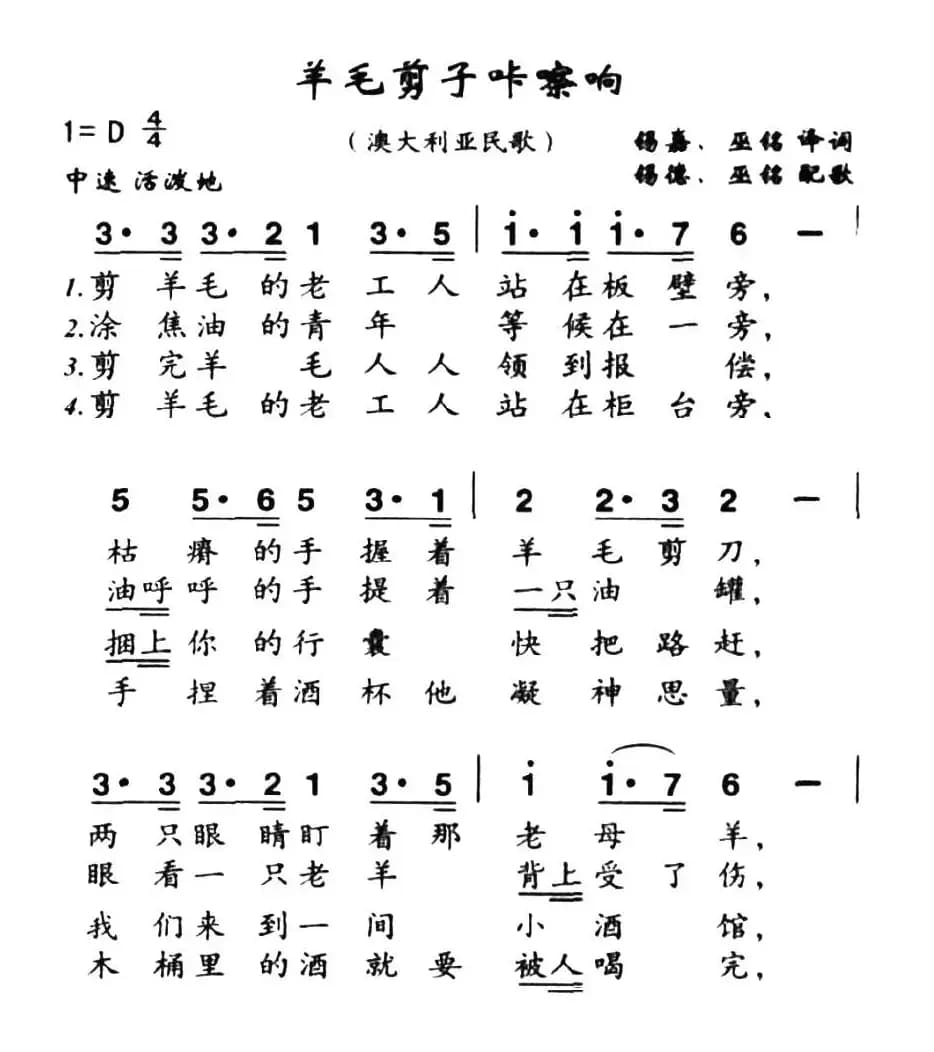 羊毛剪子咔嚓响
1=D 4/4
（澳大利亚民歌）
锡嘉、巫铭 译词
中速 活泼地
锡德、巫铭 配歌
3· 3 3· 2 1 3· 5 | i· i i· 7 6 — |
1.剪羊毛的老工人 站在板壁旁，
2.涂焦油的青年 等候在一旁，
3.剪完羊毛人人领到报偿，
4.剪羊毛的老工人 站在柜台旁、
5 5· 6 5 3· 1 | 2 2· 3 2 — |
枯瘠的手握着羊毛剪刀，
油呼呼的手提着一只油罐，
捆上你的行囊 快把路赶，
手捏着酒杯他凝神思量，
3· 3 3· 2 1 3· 5 | i i· 7 6 — |
两只眼睛盯着那老母羊，
眼看一只老羊 背上受了伤，
我们来到一间 小酒馆，
木桶里的酒就要被人喝完，